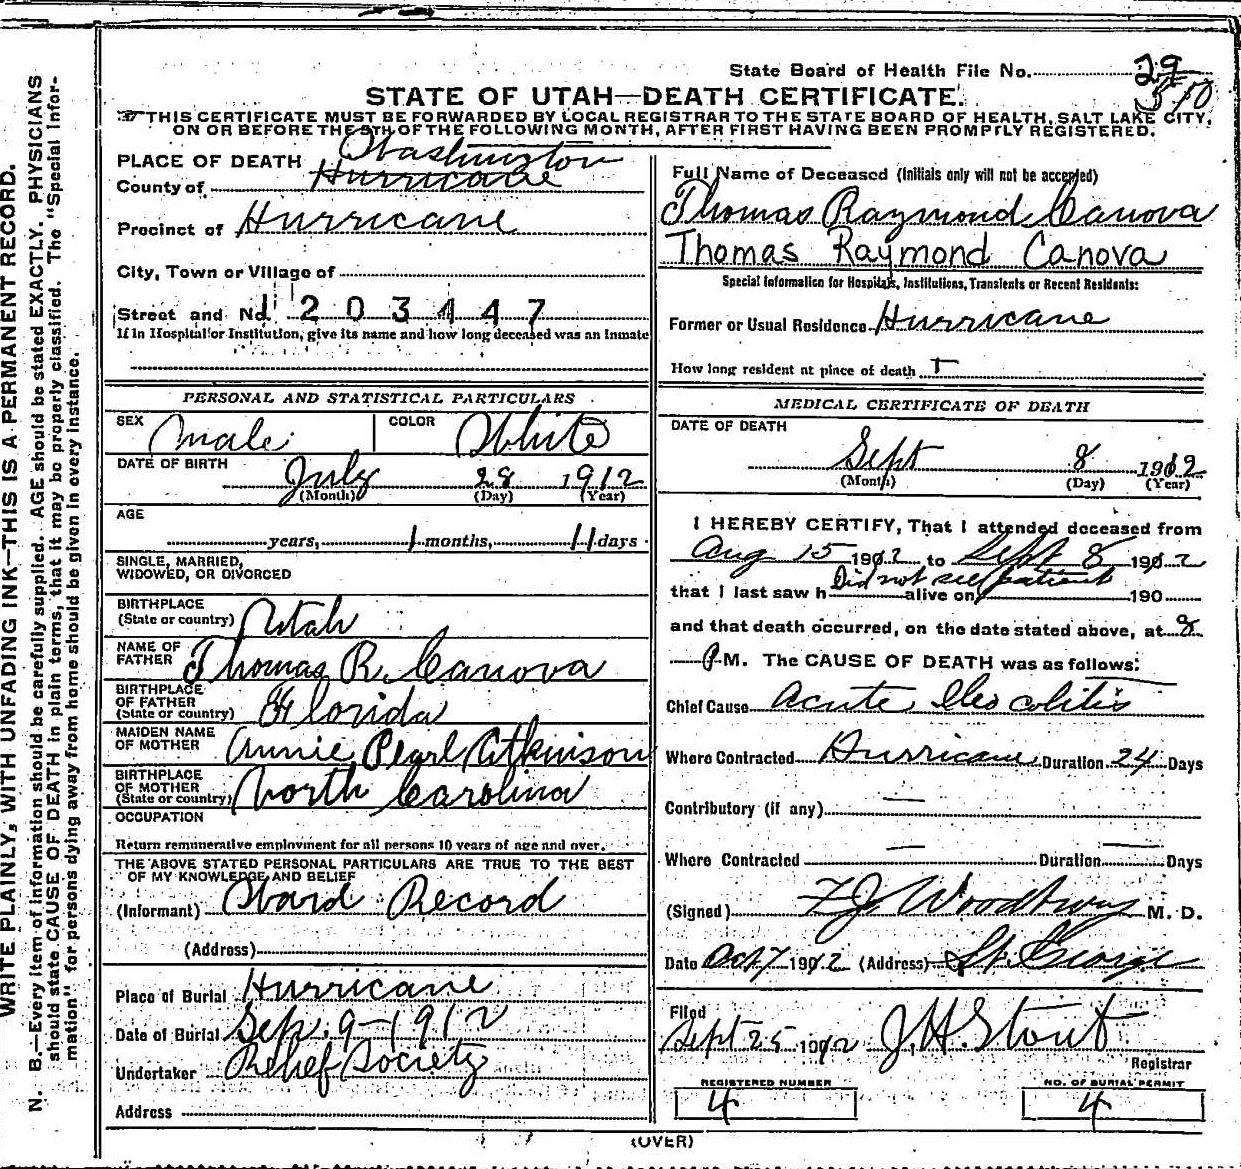 State Board of Health File No. 29
510
STATE OF UTAH—DEATH CERTIFICATE.
THIS CERTIFICATE MUST BE FORWARDED BY LOCAL REGISTRAR TO THE STATE BOARD OF HEALTH, SALT LAKE CITY,
ON OR BEFORE THE 5TH OF THE FOLLOWING MONTH, AFTER FIRST HAVING BEEN PROMPTLY REGISTERED.
PLACE OF DEATH Washington
County of Hurricane
Precinct of Hurricane
City, Town or Village of
Street and No. 1203447
If in Hospital or Institution, give its name and how long deceased was an inmate
PERSONAL AND STATISTICAL PARTICULARS
SEX Male COLOR White
DATE OF BIRTH July 28 1912
(Month) (Day) (Year)
AGE
years, 1 months, 11 days
SINGLE, MARRIED,
WIDOWED, OR DIVORCED
BIRTHPLACE
(State or country) Utah
NAME OF
FATHER Thomas R. Canova
BIRTHPLACE
OF FATHER
(State or country) Florida
MAIDEN NAME
OF MOTHER Annie Pearl Atkinson
BIRTHPLACE
OF MOTHER
(State or country) North Carolina
OCCUPATION
Return remunerative employment for all persons 10 years of age and over.
THE ABOVE STATED PERSONAL PARTICULARS ARE TRUE TO THE BEST
OF MY KNOWLEDGE AND BELIEF
(Informant) Ward Record
(Address)
Place of Burial Hurricane
Date of Burial Sep. 9-1912
Undertaker Relief Society
Address
Full Name of Deceased (Initials only will not be accepted)
Thomas Raymond Canova
Thomas Raymond Canova
Special Information for Hospitals, Institutions, Transients or Recent Residents:
Former or Usual Residence Hurricane
How long resident at place of death
MEDICAL CERTIFICATE OF DEATH
DATE OF DEATH
Sept 8 1912
(Month) (Day) (Year)
I HEREBY CERTIFY, That I attended deceased from
Aug 15 1912 to Sept 8 1912
Did not see patient
that I last saw h alive on 190
and that death occurred, on the date stated above, at 8
P M. The CAUSE OF DEATH was as follows:
Chief Cause Acute Ileo colitis
Where Contracted Hurricane Duration 24 Days
Contributory (if any)
Where Contracted Duration Days
(Signed) F.J. Woodbury M. D.
Date Oct 7 1912 (Address) St. George
Filed
Sept 25 1912 J.H. Stout
Registrar
REGISTERED NUMBER
4
NO. OF BURIAL PERMIT
4
(OVER)
WRITE PLAINLY, WITH UNFADING INK—THIS IS A PERMANENT RECORD.
N. B.—Every item of information should be carefully supplied. AGE should be stated EXACTLY. PHYSICIANS
should state CAUSE OF DEATH in plain terms, that it may be properly classified. The "Special Infor-
mation" for persons dying away from home should be given in every instance.